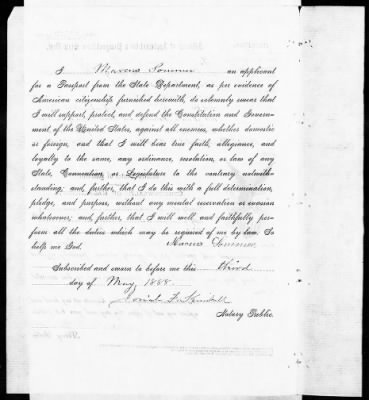 I Marcus Sommer an applicant
for a Passport from the State Department, as per evidence of
American citizenship furnished herewith, do solemnly swear that
I will support, protect, and defend the Constitution and Govern-
ment of the United States, against all enemies, whether domestic
or foreign, and that I will bear true faith, allegiance, and
loyalty to the same, any ordinance, resolution, or law of any
State, Convention, or Legislature to the contrary notwith-
standing; and, further, that I do this with a full determination,
pledge, and purpose, without any mental reservation or evasion
whatsoever; and, further, that I will well and faithfully per-
form all the duties which may be required of me by law. So
help me God. Marcus Sommer
Subscribed and sworn to before me this third
day of May, 1888.
Notary Public.